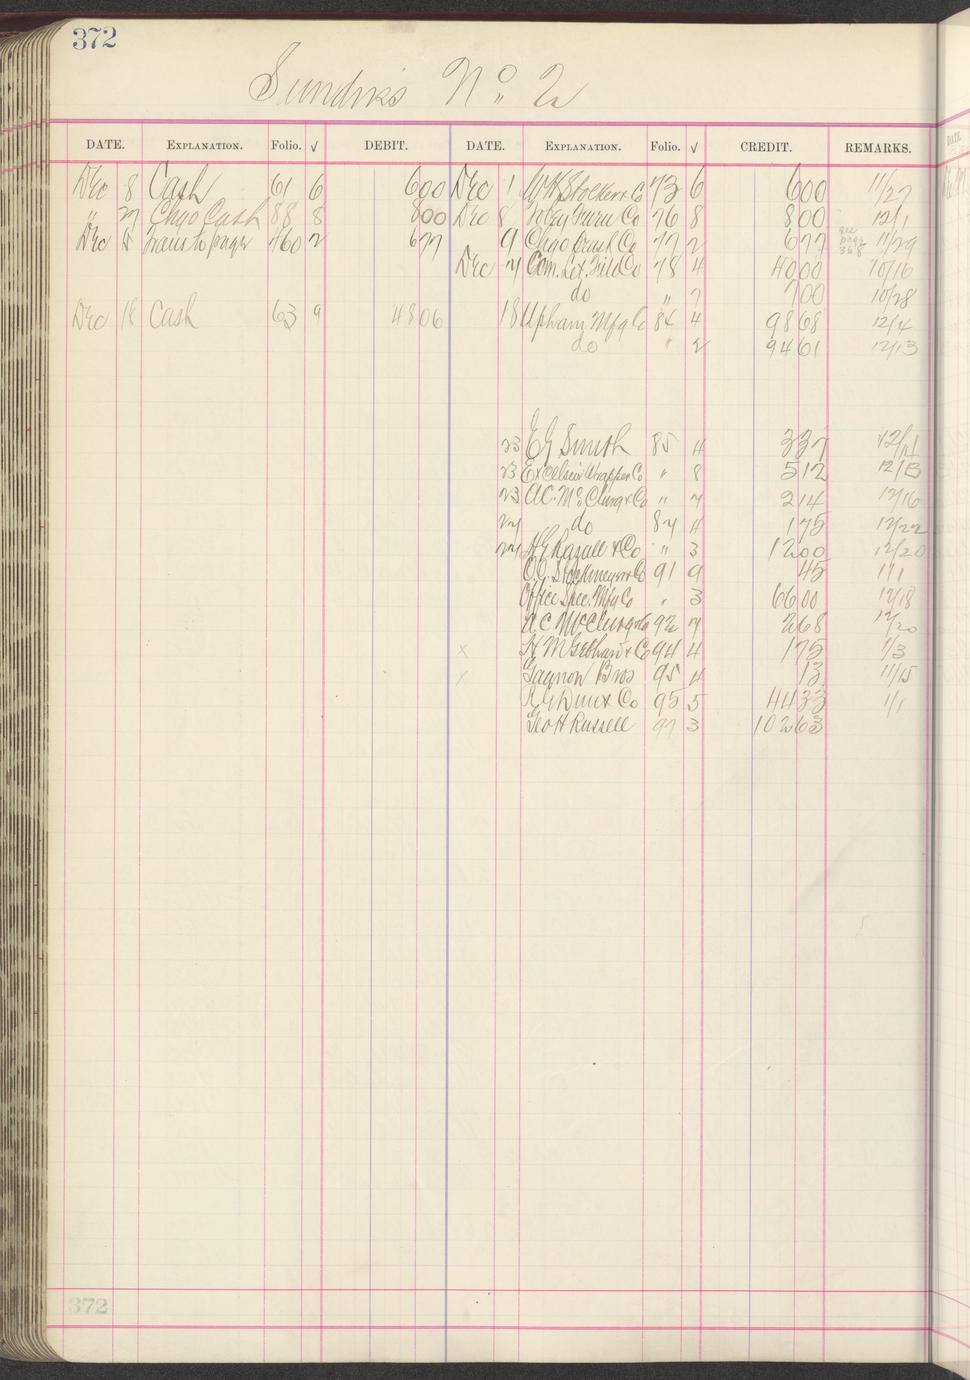 372
Sundries No. 2
DATE. EXPLANATION. Folio. √ DEBIT. DATE. EXPLANATION. Folio. √ CREDIT. REMARKS.
Dec 8 Cash 61 6 600 Dec 1 73 6 600 11/27
" 27 Chgo Cash 88 8 800 Dec 8 Co 76 8 800 12/1
Dec Trans to page 460 2 677 9 Chgo Brush Co 77 2 677 see page 368 11/29
Dec 7 Com. Co 78 4 4000 10/16
do " 7 700 10/28
Dec 18 Cash 63 9 4806 18 Upham Mfg Co 84 4 9868 12/4
do " 2 9461 12/13
23 E G Smith 85 4 337 12/11
23 Excelsior Wrapper Co " 8 512 12/13
23 A.C. McClurg & Co " 7 214 12/16
do 87 4 175 12/22
& Co " 3 1200 12/20
91 9 45 1/1
Office Spec. Mfg Co " 3 6600 12/18
A.C. McClurg & Co 92 7 268 12/20
x H M Gebhart & Co 94 4 175 1/3
x Gagnon Bros 95 4 13 11/15
R G Dun & Co 95 5 4433 1/1
Geo H Russell 97 3 10263
372